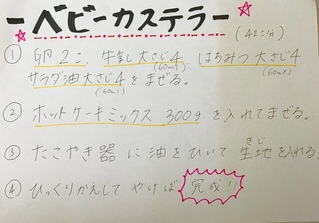 ベビーカステラ
(42こ分)
① 卵2こ 牛乳大さじ4 はちみつ大さじ4
(60ml) (60ml)
サラダ油大さじ4をまぜる。
(60ml)
② ホットケーキミックス 300gを入れてまぜる。
③ たこやき器に油をひいて生地を入れる。
きじ
④ ひっくりかえしてやけば完成!!